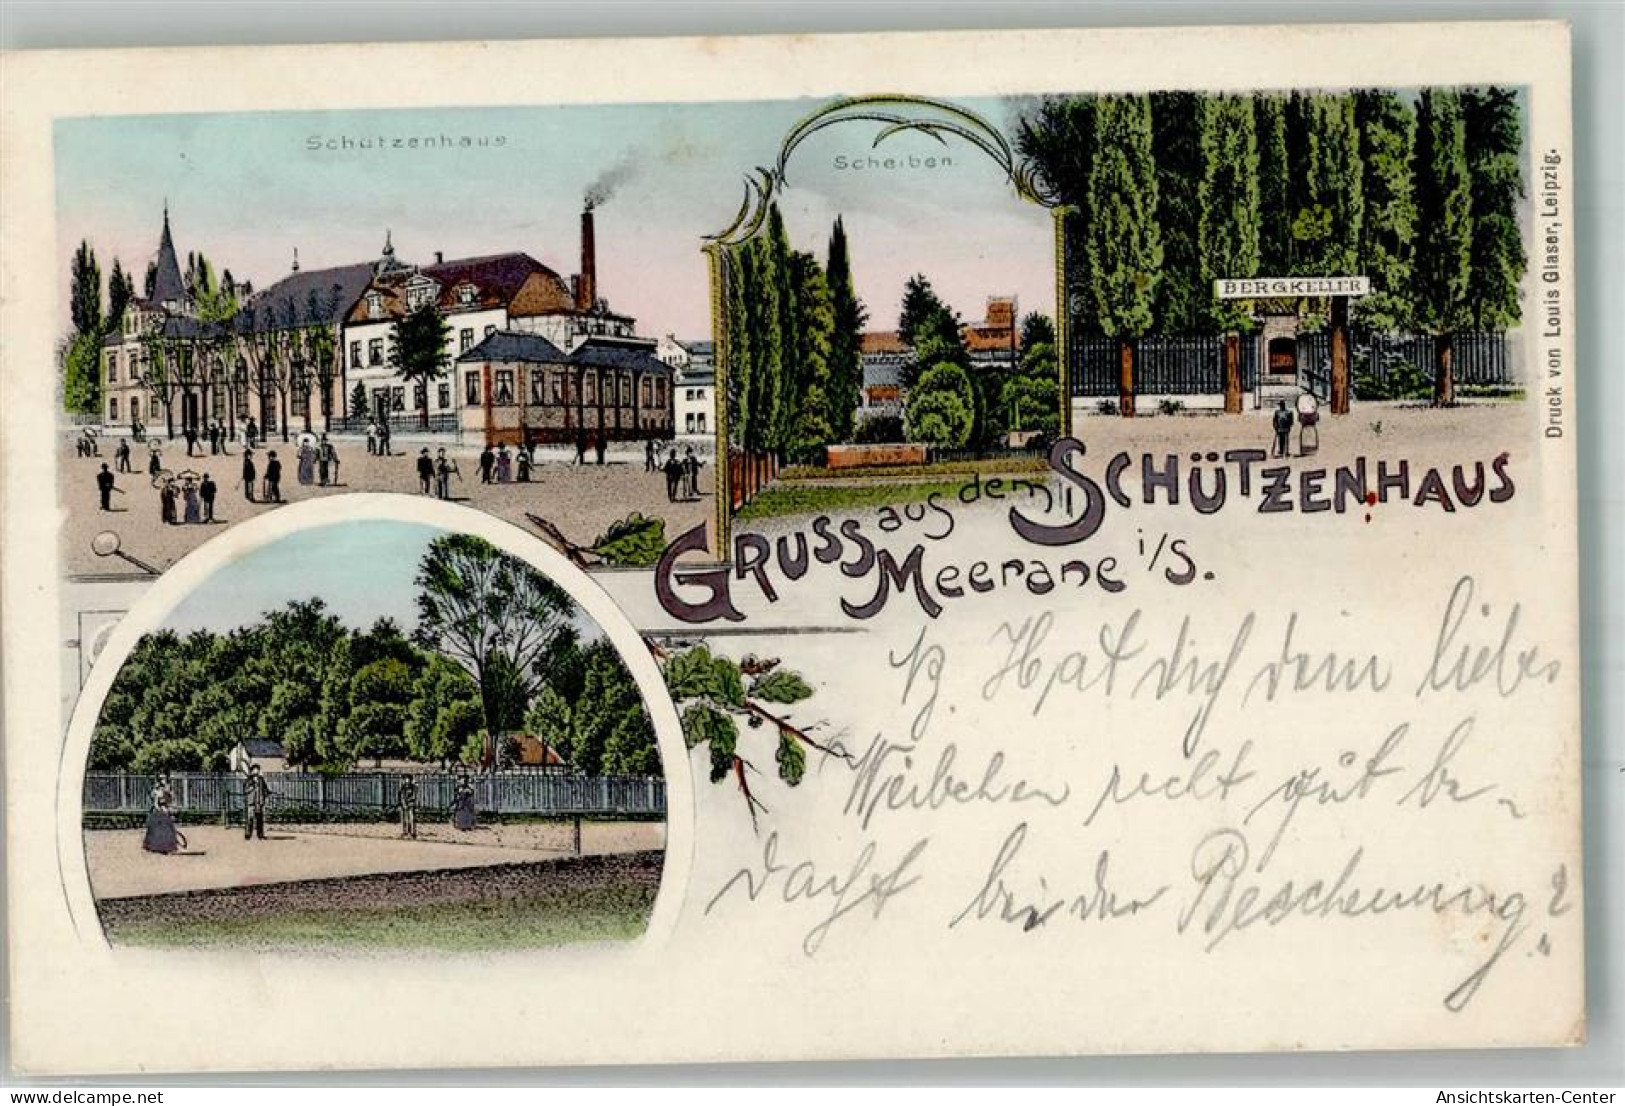 Schützenhaus
Scheiben.
BERGKELLER
Druck von Louis Glaser, Leipzig.
GRUSS aus dem SCHÜTZENHAUS
MEERANE i/S.
Hat dich dein liebes
Weibchen recht gut be-
dacht bei der Bescherung?
delcampe.net
Ansichtskarten-Center